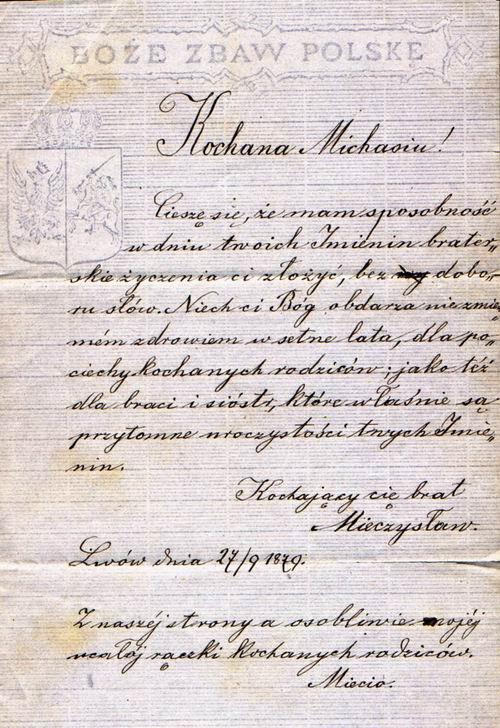 BOŻE ZBAW POLSKĘ
Kochana Michasiu!
Cieszę się, że mam sposobność
w dniu twoich Imienin brater„
skie życzenia ci złożyć, bez dobo„
ru słów. Niech ci Bóg obdarza niezmie„
mém zdrowiem w setne lata, dla po„
ciechy kochanych rodziców; jako téż
dla braci i sióstr, które właśnie są
przytomne uroczystości twych Imie„
nin.
Kochający cię brat
Mieczysław.
Lwów dnia 27/9 1879.
Z naszéj strony a osobliwie mojéj
ucałój rączki kochanych rodziców.
Miecio.